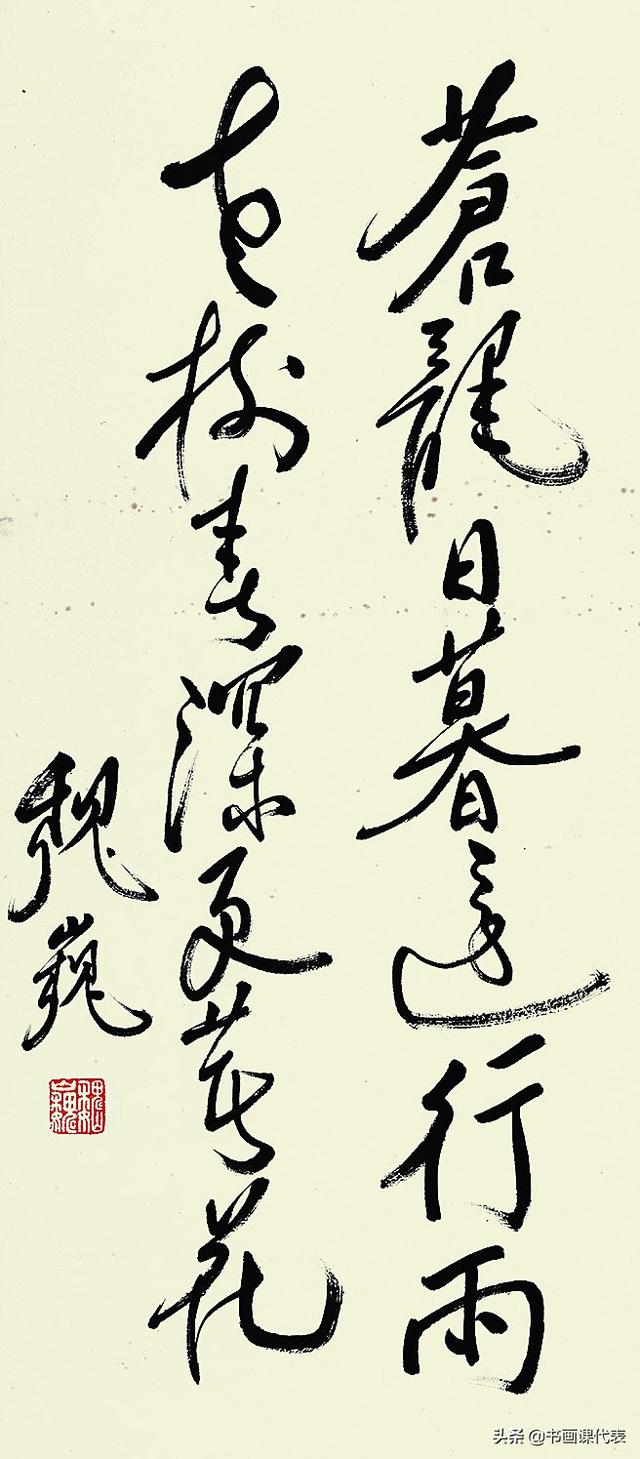 蒼龍日暮還行雨
老樹春深更著花
魏巍
魏巍
头条 @书画课代表